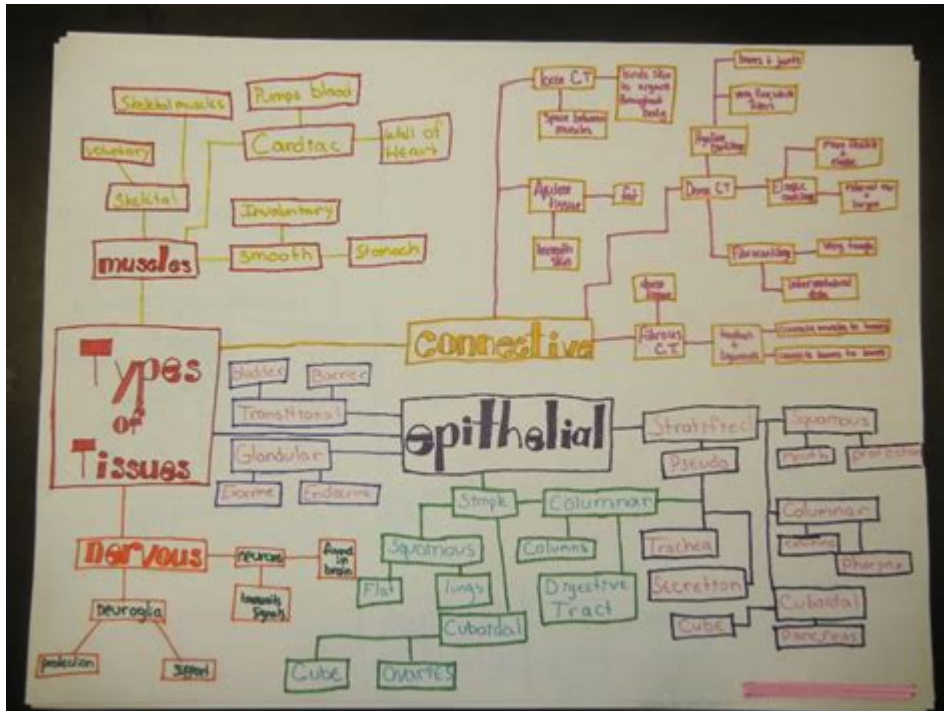 Types
of
Tissues
muscles
Skeletal
voluntary
Skeletal muscles
Cardiac
Pumps blood
Wall of
Heart
smooth
Involuntary
Stomach
connective
loose C.T
binds skin
to organs
throughout
body
Space between
muscles
tissue
fat
beneath
skin
Dense CT
bones + joints
very fine, white
fibers
Elastic
more flexible
+
elastic
very tough
intervertebral
disks
fibrous
C.T
dense
tissue
tendons
+
ligaments
connects muscles to bones
connects bones to bones
epithelial
Transitional
Bladder
Barrier
Glandular
Exocrine
Endocrine
Simple
Squamous
Flat
lungs
Cuboidal
Cube
Ovaries
Columnar
Columns
Digestive
Tract
Stratified
Pseudo
Trachea
Secretion
Squamous
mouth
protection
Columnar
Pharynx
Cuboidal
Cube
Pancreas
nervous
neurons
found
in
brain
transmits
signals
neuroglia
protection
support